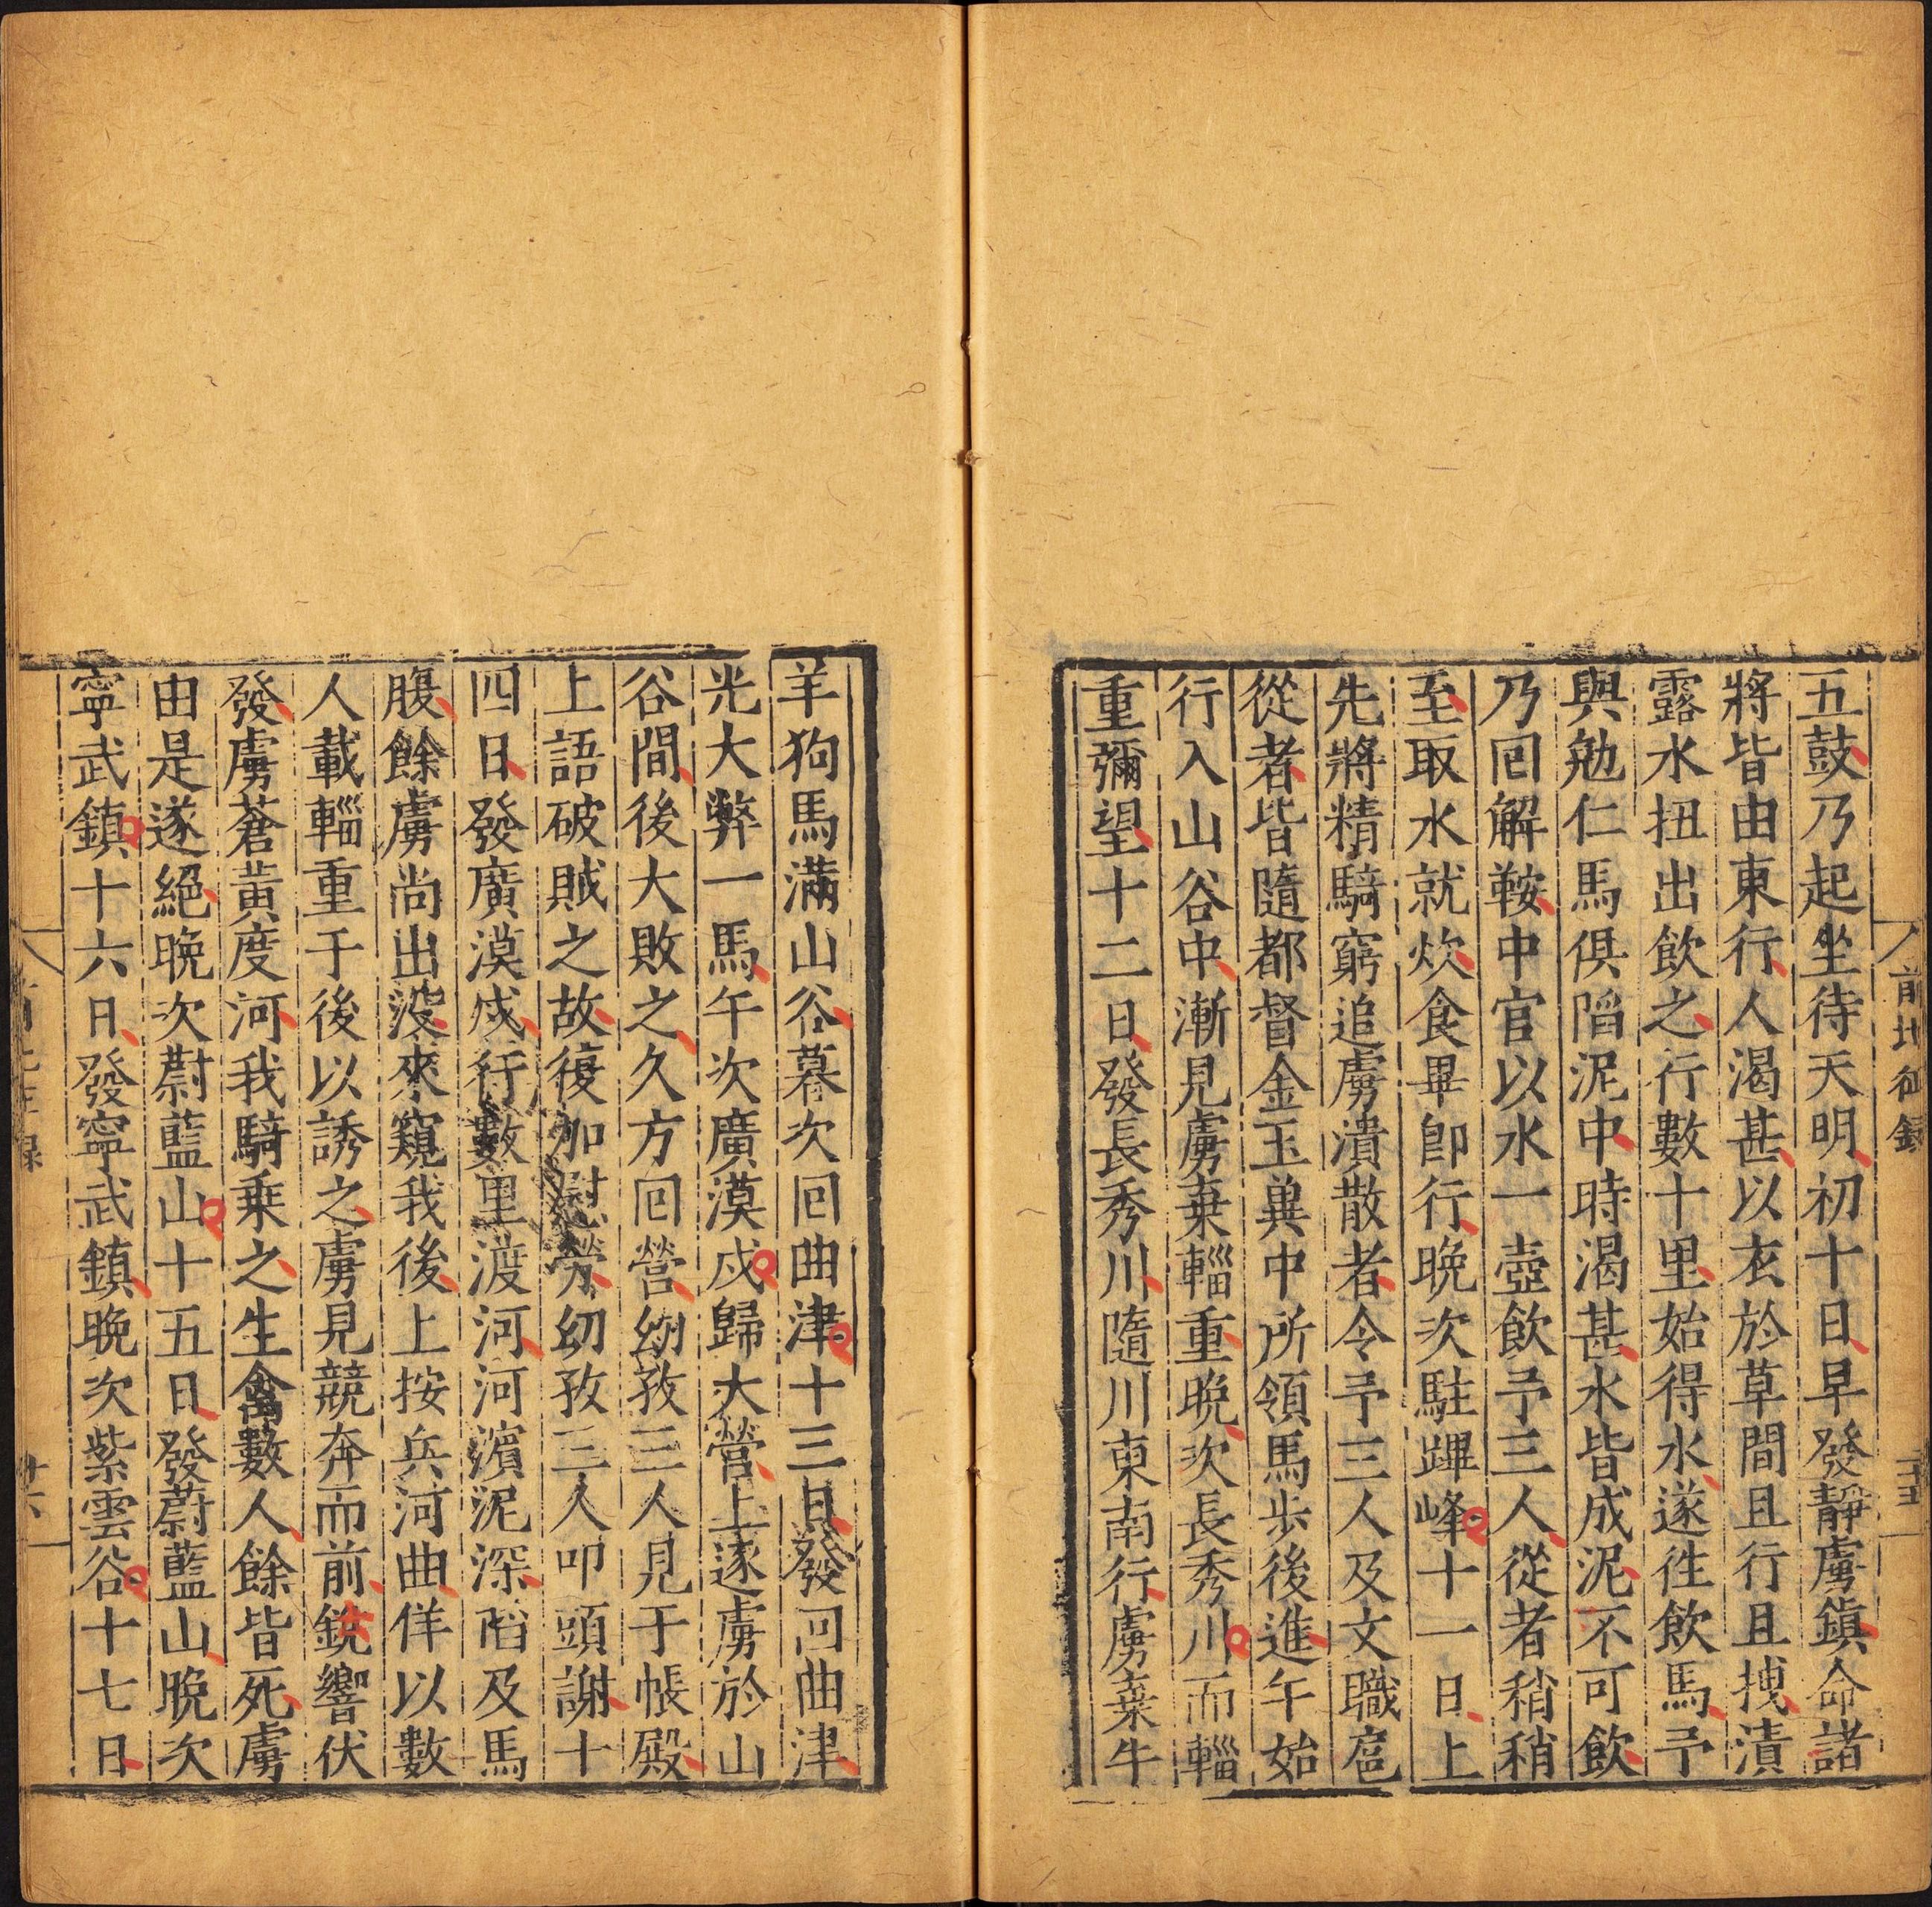 前北征錄
二十五
五鼓乃起坐待天明初十日早發靜虜鎮命諸
將皆由東行人渴甚以衣於草間且行且拽漬
露水扭出飲之行數十里始得水遂往飲馬予
與勉仁馬俱陷泥中時渴甚水皆成泥不可飲
乃回解鞍中官以水一壺飲予三人從者稍稍
至取水就炊食畢卽行晚次駐蹕峰十一日上
先將精騎窮追虜潰散者令予三人及文職扈
從者皆隨都督金玉冀中所領馬步後進午始
行入山谷中漸見虜棄輜重晚次長秀川而輜
重彌望十二日發長秀川隨川東南行虜棄牛
羊狗馬滿山谷暮次回曲津十三日發回曲津
光大斃一馬午次廣漠戍歸大營上逐虜於山
谷間後大敗之久方回營幼孜三人見于帳殿
上語破賊之故復加慰勞幼孜三人叩頭謝十
四日發廣漠戍行數里渡河河濱泥深陷及馬
腹餘虜尚出沒來窺我後上按兵河曲佯以數
人載輜重于後以誘之虜見競奔而前銃響伏
發虜蒼黃度河我騎乗之生擒數人餘皆死虜
由是遂絕晚次蔚藍山十五日發蔚藍山晚次
寧武鎮十六日發寧武鎮晚次紫雲谷十七日